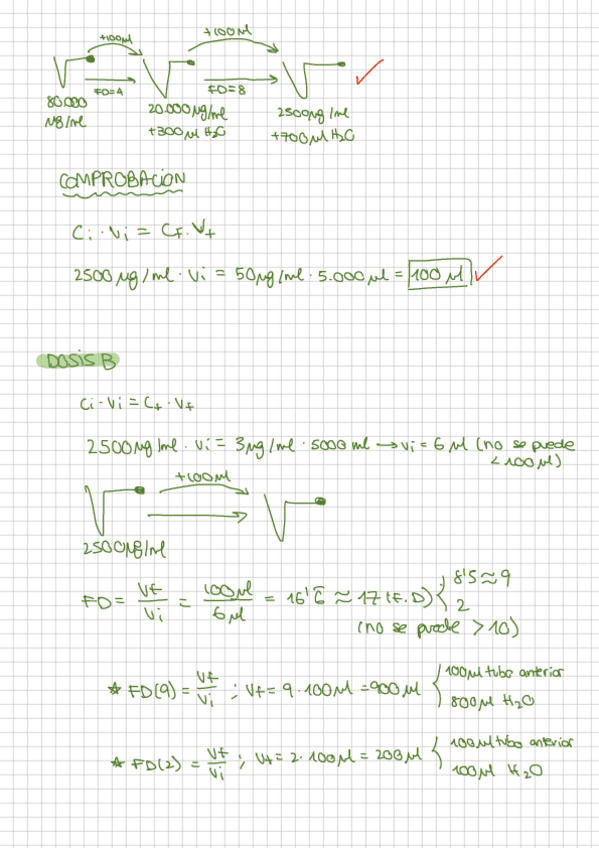 +100μl +100μl
FD=4 FD=8
80.000 μg/ml 20.000μg/ml 2500μg/ml
+300μl H2O +700μl H2O
COMPROBACION
Ci · Vi = Cf · Vf
2500 μg/ml · Vi = 50μg/ml · 5.000 μl = 100 μl
DOSIS B
Ci · Vi = Cf · Vf
2500μg/ml · Vi = 3μg/ml · 5000 ml → Vi = 6 μl (no se puede
< 100 μl)
+100μl
2500μg/ml
FD = Vf/Vi = 100μl/6μl = 16'6̄ ≈ 17 (F.D) { 8'5 ≈ 9
2
(no se puede > 10)
* FD(9) = Vf/Vi ; Vf = 9 · 100μl = 900μl { 100μl tubo anterior
800μl H2O
* FD(2) = Vf/Vi ; Vf = 2 · 100μl = 200μl { 100μl tubo anterior
100μl H2O